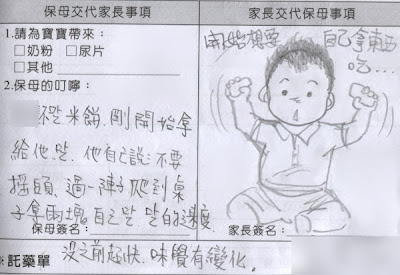 保母交代家長事項
1.請為寶寶帶來：
□奶粉 □尿片
□其他
2.保母的叮嚀：
吃米餅.剛開始拿
給他吃.他自己說:不要
搖頭.過一陣子爬到桌
子拿兩塊自己吃.吃的速度
保母簽名：
沒之前超快.味覺有變化。
託藥單
家長交代保母事項
開始想要 自己拿東西
吃...
家長簽名：